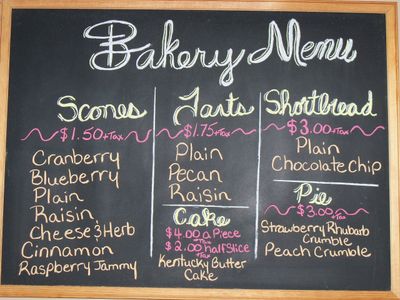 Bakery Menu
Scones
$1.50+Tax
Cranberry
Blueberry
Plain
Raisin
Cheese & Herb
Cinnamon
Raspberry Jammy
Tarts
$1.75+Tax
Plain
Pecan
Raisin
Cake
$4.00 a Piece
+Tax
$2.00 half Slice
+Tax
Kentucky Butter
Cake
Shortbread
$3.00+Tax
Plain
Chocolate Chip
Pie
$3.00+Tax
Strawberry Rhubarb
Crumble
Peach Crumble